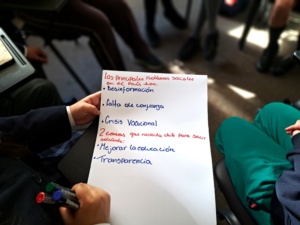 Los Principales Problemas sociales
en el país son:
• Desinformación
• Falta de confianza
• Crisis Vocacional
2 cosas que necesita chile para salir
adelante:
• Mejorar la educación
• Transparencia